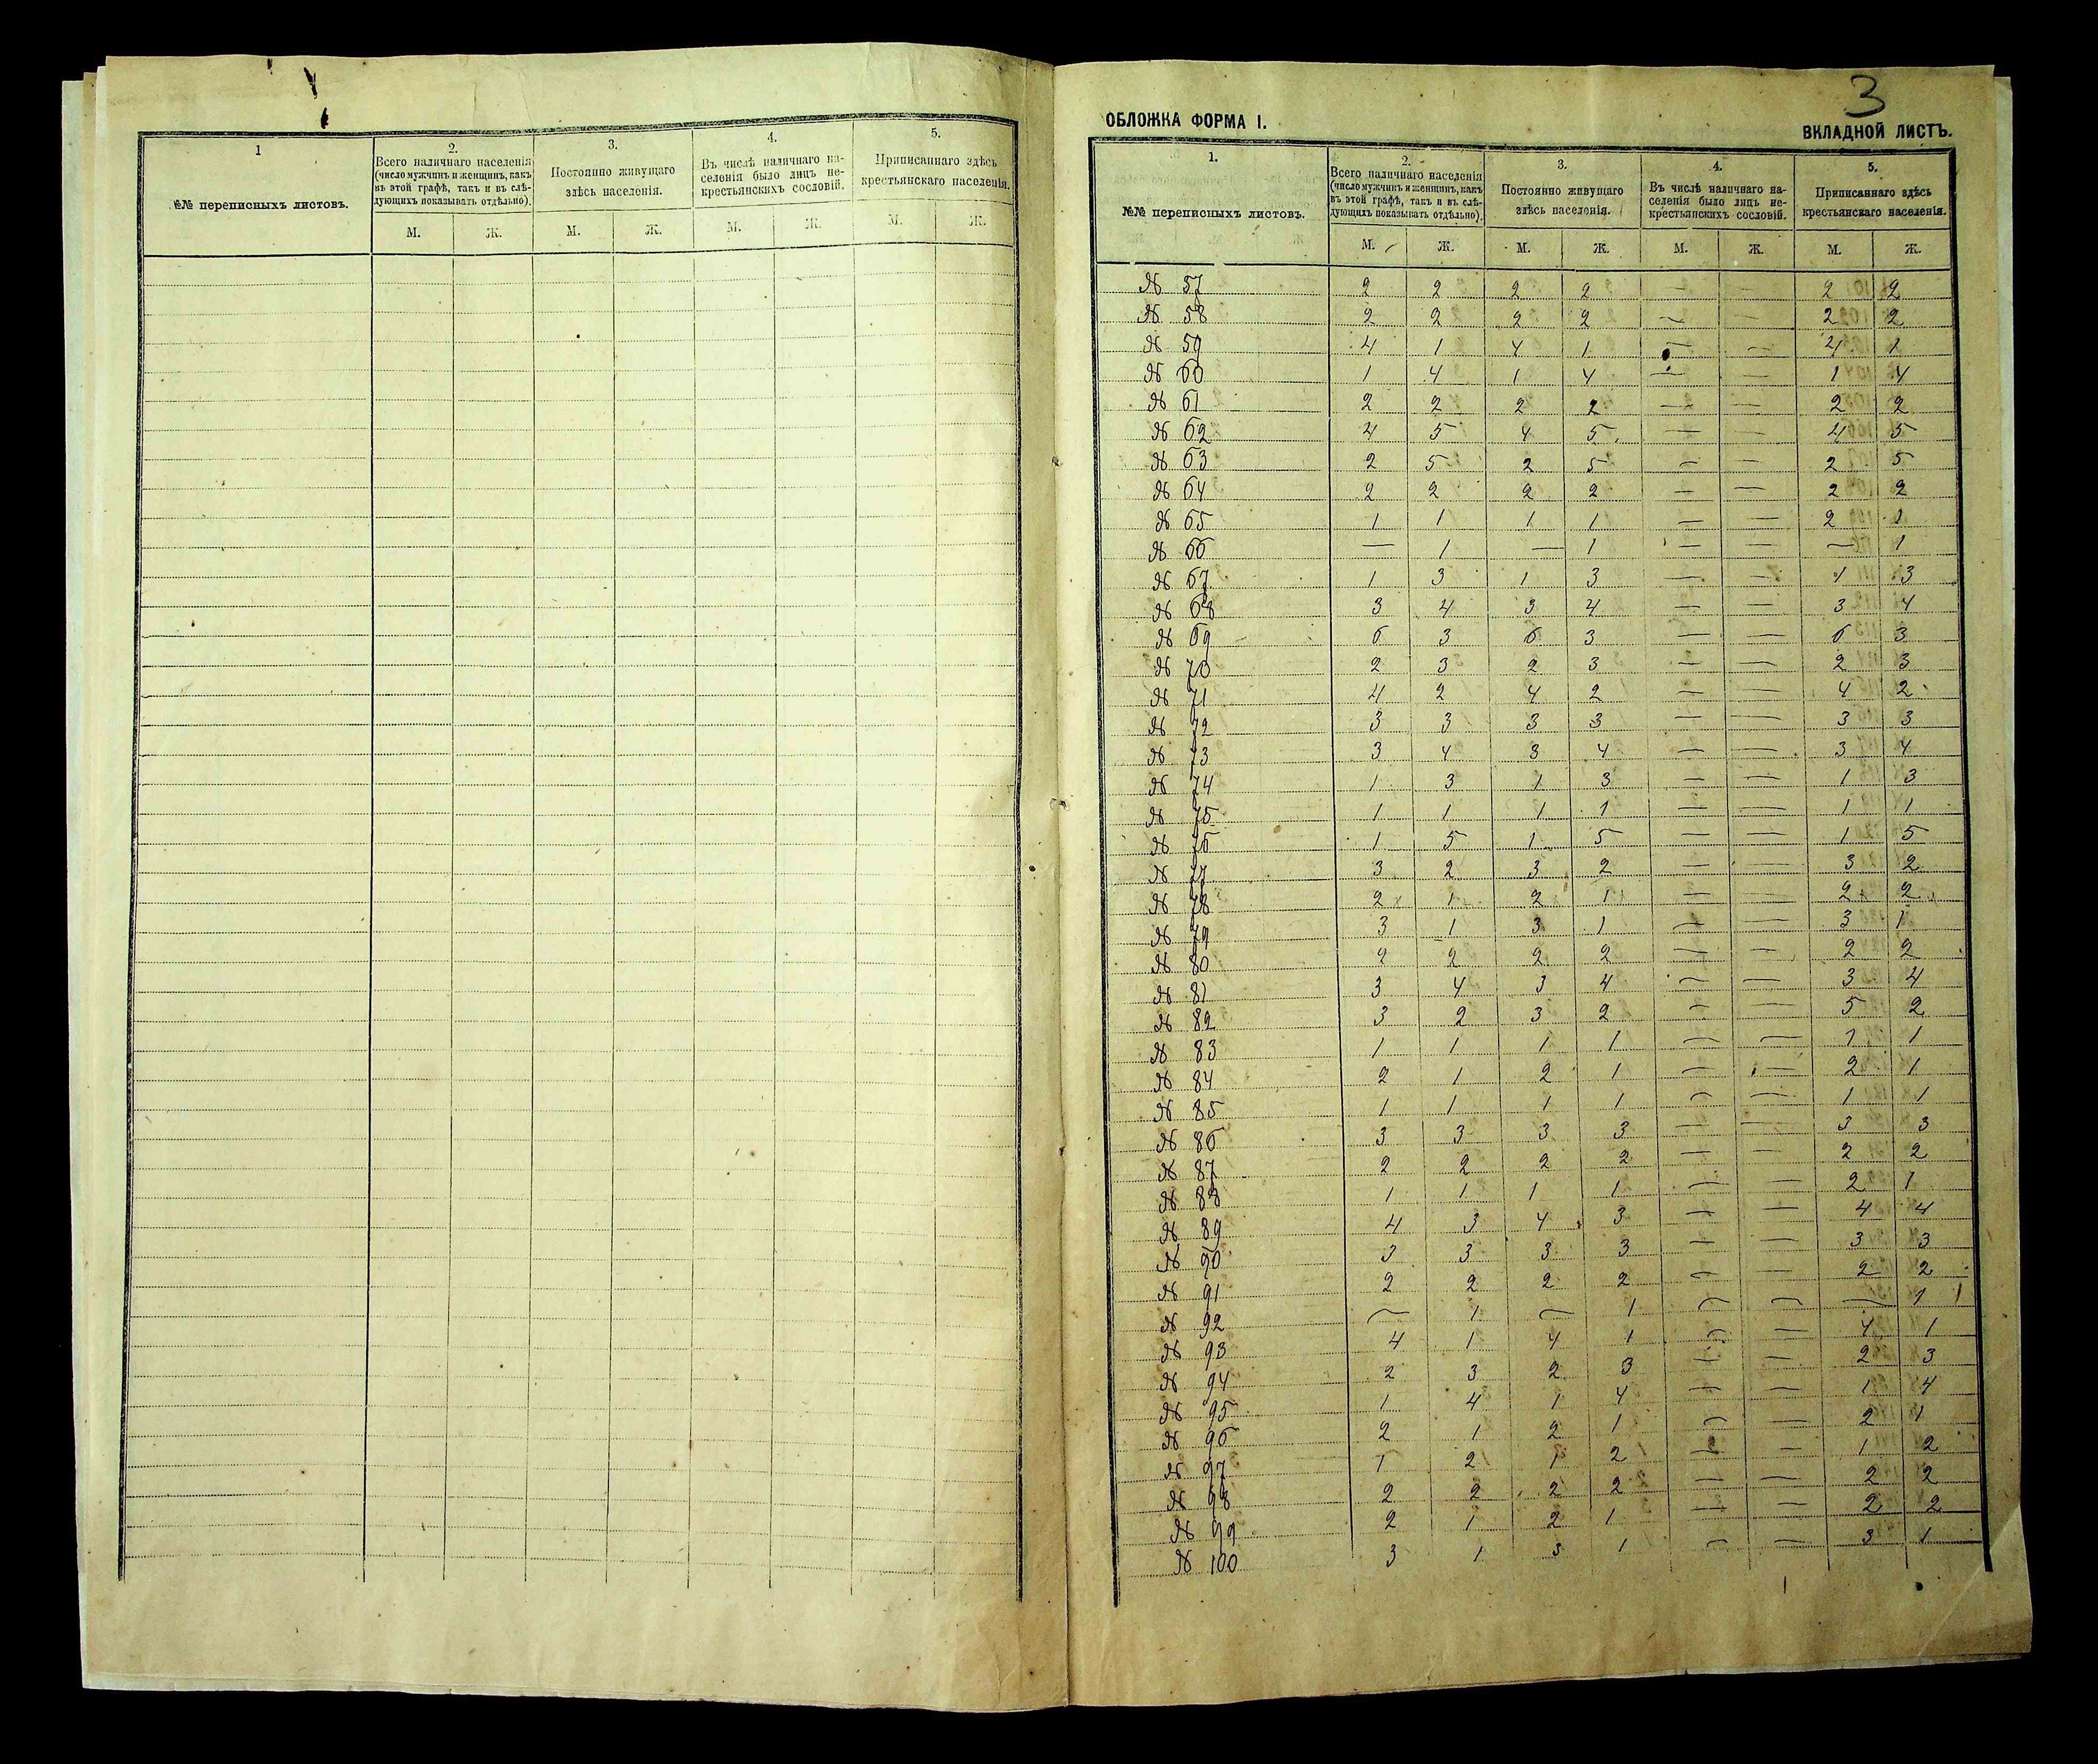 1
№№ переписныхъ листовъ.
2.
Всего наличнаго населенія
(число мужчинъ и женщинъ, какъ
въ этой графѣ, такъ и въ слѣ-
дующихъ показывать отдѣльно).
3.
Постоянно живущаго
здѣсь населенія.
4.
Въ числѣ наличнаго на-
селенія было лицъ не-
крестьянскихъ сословій.
5.
Приписаннаго здѣсь
крестьянскаго населенія.
М. Ж. М. Ж. М. Ж. М. Ж.
3
ОБЛОЖКА ФОРМА I.
ВКЛАДНОЙ ЛИСТЪ.
1.
№№ переписныхъ листовъ.
2.
Всего наличнаго населенія
(число мужчинъ и женщинъ, какъ
въ этой графѣ, такъ и въ слѣ-
дующихъ показывать отдѣльно).
3.
Постоянно живущаго
здѣсь населенія.
4.
Въ числѣ наличнаго на-
селенія было лицъ не-
крестьянскихъ сословій.
5.
Приписаннаго здѣсь
крестьянскаго населенія.
М. Ж. М. Ж. М. Ж. М. Ж.
№ 57 2 2 2 2 — — 2 2
№ 58 2 2 2 2 — — 2 2
№ 59 4 1 4 1 — — 4 1
№ 60 1 4 1 4 — — 1 4
№ 61 2 2 2 2 — — 2 2
№ 62 4 5 4 5 — — 4 5
№ 63 2 5 2 5 — — 2 5
№ 64 2 2 2 2 — — 2 2
№ 65 1 1 1 1 — — 2 1
№ 66 — 1 — 1 — — — 1
№ 67 1 3 1 3 — — 1 3
№ 68 3 4 3 4 — — 3 4
№ 69 6 3 6 3 — — 6 3
№ 70 2 3 2 3 — — 2 3
№ 71 4 2 4 2 — — 4 2
№ 72 3 3 3 3 — — 3 3
№ 73 3 4 3 4 — — 3 4
№ 74 1 3 1 3 — — 1 3
№ 75 1 1 1 1 — — 1 1
№ 76 1 5 1 5 — — 1 5
№ 77 3 2 3 2 — — 3 2
№ 78 2 1 2 1 — — 2 2
№ 79 3 1 3 1 — — 3 1
№ 80 2 2 2 2 — — 2 2
№ 81 3 4 3 4 — — 3 4
№ 82 3 2 3 2 — — 5 2
№ 83 1 1 1 1 — — 1 1
№ 84 2 1 2 1 — — 2 1
№ 85 1 1 1 1 — — 1 1
№ 86 3 3 3 3 — — 3 3
№ 87 2 2 2 2 — — 2 2
№ 88 1 1 1 1 — — 2 1
№ 89 4 3 4 3 — — 4 4
№ 90 3 3 3 3 — — 3 3
№ 91 2 2 2 2 — — 2 2
№ 92 — 1 — 1 — — — 1
№ 93 4 1 4 1 — — 4 1
№ 94 2 3 2 3 — — 2 3
№ 95 1 4 1 4 — — 1 4
№ 96 2 1 2 1 — — 2 1
№ 97 1 2 1 2 — — 1 2
№ 98 2 2 2 2 — — 2 2
№ 99 2 1 2 1 — — 2 2
№ 100 3 1 3 1 — — 3 1